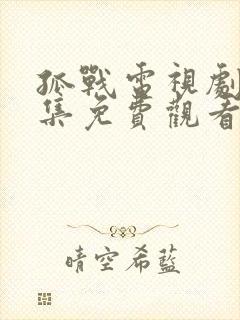 孤戰電視劇
集免費觀看
晴空希藍